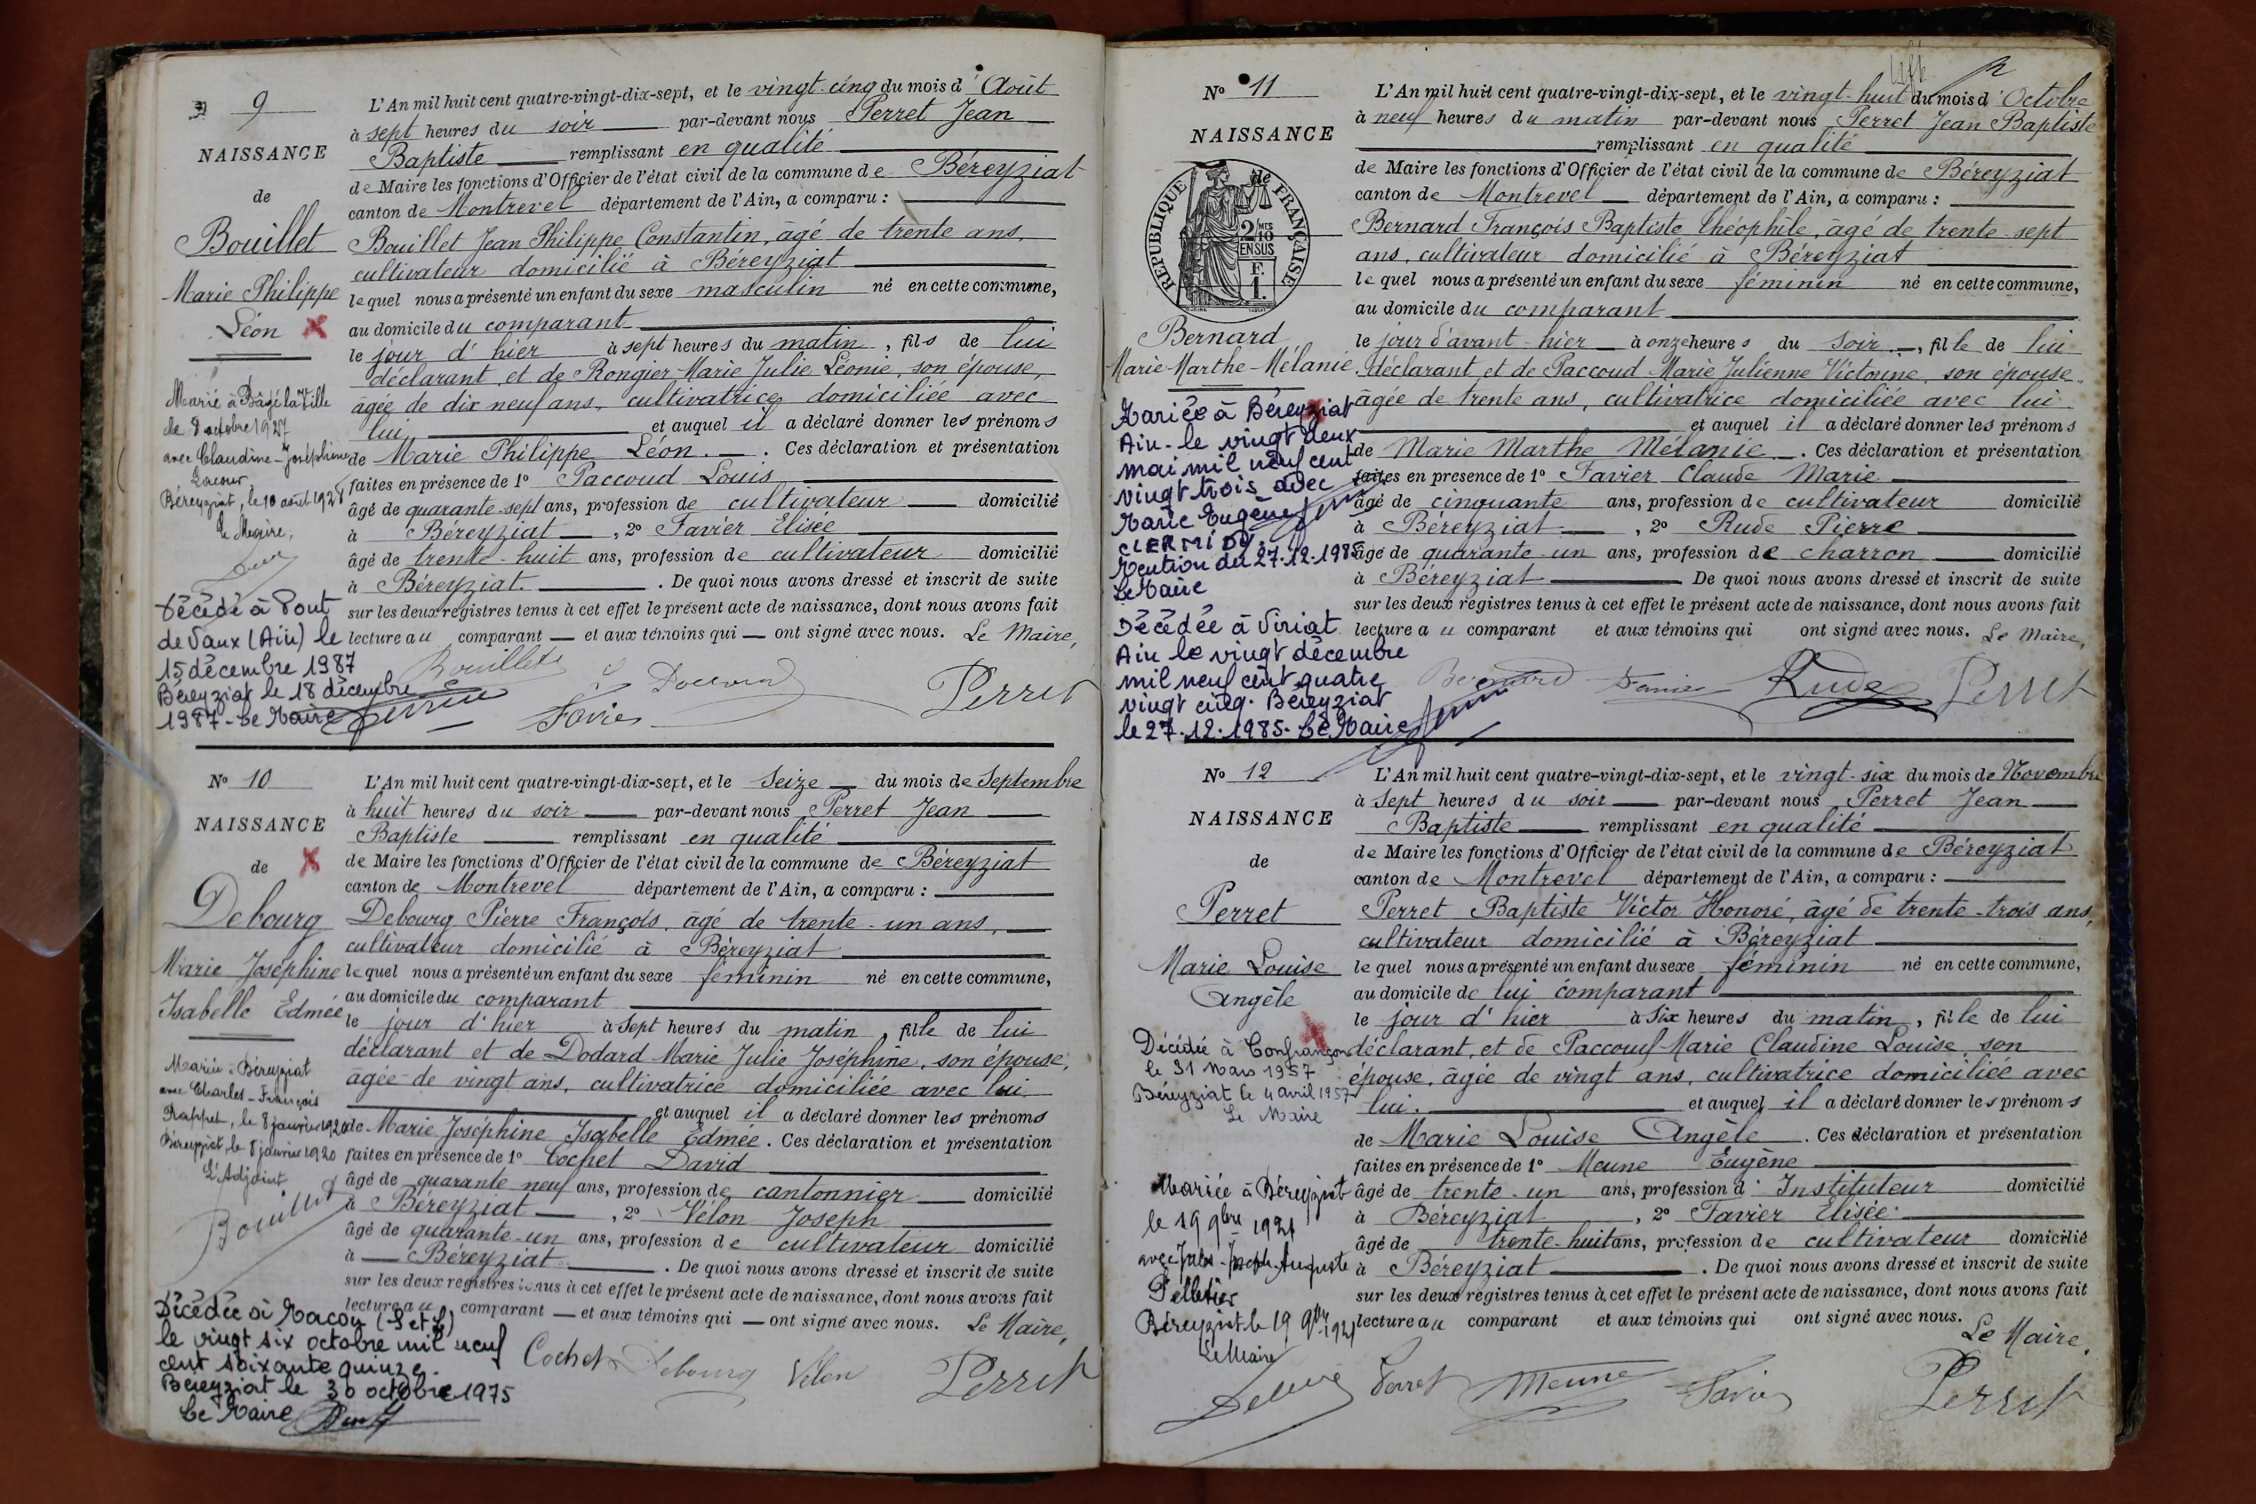 N° 9
NAISSANCE
de
Bouillet
Marie Philippe
Léon
Marié à Bâgé la Ville
le 8 octobre 1927
avec Claudine-Joséphine
Lacour
Béreyziat, le 10 août 1928
Le Maire,
Décédé à Pont
de Vaux (Ain) le
15 décembre 1987
Béreyziat le 18 décembre
1987 - Le Maire
L'An mil huit cent quatre-vingt-dix-sept, et le vingt-cinq du mois d'Août
à sept heures du soir par-devant nous Perret Jean
Baptiste remplissant en qualité
de Maire les fonctions d'Officier de l'état civil de la commune de Béreyziat
canton de Montrevel département de l'Ain, a comparu :
Bouillet Jean Philippe Constantin, âgé de trente ans,
cultivateur domicilié à Béreyziat
lequel nous a présenté un enfant du sexe masculin né en cette commune,
au domicile du comparant
le jour d'hier à sept heures du matin, fils de lui
déclarant et de Rongier Marie Julie Léonie, son épouse,
âgée de dix neuf ans, cultivatrice domiciliée avec
lui et auquel il a déclaré donner les prénoms
de Marie Philippe Léon. Ces déclaration et présentation
faites en présence de 1° Paccoud Louis
âgé de quarante-sept ans, profession de cultivateur domicilié
à Béreyziat, 2° Favier Elisée
âgé de trente-huit ans, profession de cultivateur domicilié
à Béreyziat. De quoi nous avons dressé et inscrit de suite
sur les deux registres tenus à cet effet le présent acte de naissance, dont nous avons fait
lecture au comparant et aux témoins qui ont signé avec nous. Le Maire,
Bouillet Paccoud
Favier Perret
N° 10
NAISSANCE
de
Debourg
Marie Joséphine
Isabelle Edmée
Mariée à Béreyziat
avec Charles-François
Rappet, le 8 janvier 1920
Béreyziat, le 8 janvier 1920
L'Adjoint
Bouillet
Décédée à Macon (S et L)
le vingt six octobre mil neuf
cent soixante quinze.
Béreyziat le 30 octobre 1975
Le Maire
L'An mil huit cent quatre-vingt-dix-sept, et le Seize du mois de Septembre
à huit heures du soir par-devant nous Perret Jean
Baptiste remplissant en qualité
de Maire les fonctions d'Officier de l'état civil de la commune de Béreyziat
canton de Montrevel département de l'Ain, a comparu :
Debourg Pierre François, âgé de trente-un ans,
cultivateur domicilié à Béreyziat
lequel nous a présenté un enfant du sexe féminin né en cette commune,
au domicile du comparant
le jour d'hier à Sept heures du matin, fille de lui
déclarant et de Dodard Marie Julie Joséphine, son épouse,
âgée de vingt ans, cultivatrice domiciliée avec lui
et auquel il a déclaré donner les prénoms
de Marie Joséphine Isabelle Edmée. Ces déclaration et présentation
faites en présence de 1° Cochet David
âgé de quarante neuf ans, profession de cantonnier domicilié
à Béreyziat, 2° Vélon Joseph
âgé de quarante-un ans, profession de cultivateur domicilié
à Béreyziat. De quoi nous avons dressé et inscrit de suite
sur les deux registres tenus à cet effet le présent acte de naissance, dont nous avons fait
lecture au comparant et aux témoins qui ont signé avec nous. Le Maire,
Cochet Debourg Vélon Perret
N° 11
NAISSANCE
de
RÉPUBLIQUE FRANÇAISE
2/10MES
EN SUS
F.
1.
Bernard
Marie Marthe-Mélanie
Mariée à Béreyziat
Ain - le vingt deux
mai mil neuf cent
vingt trois avec
Marie Eugène
CLERMIDY.
Mention du 27.12.1985
Le Maire
Décédée à Viriat
Ain le vingt décembre
mil neuf cent quatre
vingt cinq. Béreyziat
le 27.12.1985. Le Maire
L'An mil huit cent quatre-vingt-dix-sept, et le vingt-huit du mois d'Octobre
à neuf heures du matin par-devant nous Perret Jean Baptiste
remplissant en qualité
de Maire les fonctions d'Officier de l'état civil de la commune de Béreyziat
canton de Montrevel département de l'Ain, a comparu :
Bernard François Baptiste Théophile, âgé de trente-sept
ans, cultivateur domicilié à Béreyziat
lequel nous a présenté un enfant du sexe féminin né en cette commune,
au domicile du comparant
le jour d'avant-hier à onze heures du soir, fille de lui
déclarant et de Paccoud Marie Julienne Victorine, son épouse
âgée de trente ans, cultivatrice domiciliée avec lui
et auquel il a déclaré donner les prénoms
de Marie Marthe Mélanie. Ces déclaration et présentation
faites en présence de 1° Favier Claude Marie
âgé de cinquante ans, profession de cultivateur domicilié
à Béreyziat, 2° Rude Pierre
âgé de quarante-un ans, profession de charron domicilié
à Béreyziat De quoi nous avons dressé et inscrit de suite
sur les deux registres tenus à cet effet le présent acte de naissance, dont nous avons fait
lecture au comparant et aux témoins qui ont signé avec nous. Le Maire,
Bernard Favier Rude Perret
N° 12
NAISSANCE
de
Perret
Marie Louise
Angèle
Décédée à Confrançon
le 31 Mars 1957
Béreyziat le 4 avril 1957
Le Maire
Mariée à Béreyziat
le 19 9bre 1921
avec Jules-Joseph Auguste
Pelletier
Béreyziat le 19 9bre 1921
Le Maire
L'An mil huit cent quatre-vingt-dix-sept, et le vingt-six du mois de Novembre
à Sept heures du soir par-devant nous Perret Jean
Baptiste remplissant en qualité
de Maire les fonctions d'Officier de l'état civil de la commune de Béreyziat
canton de Montrevel département de l'Ain, a comparu :
Perret Baptiste Victor Honoré, âgé de trente-trois ans,
cultivateur domicilié à Béreyziat
lequel nous a présenté un enfant du sexe féminin né en cette commune,
au domicile de lui comparant
le jour d'hier à Six heures du matin, fille de lui
déclarant, et de Paccoud Marie Claudine Louise, son
épouse, âgée de vingt ans, cultivatrice domiciliée avec
lui. et auquel il a déclaré donner les prénoms
de Marie Louise Angèle. Ces déclaration et présentation
faites en présence de 1° Meune Eugène
âgé de trente-un ans, profession d'Instituteur domicilié
à Béreyziat, 2° Favier Elisée
âgé de trente-huit ans, profession de cultivateur domicilié
à Béreyziat. De quoi nous avons dressé et inscrit de suite
sur les deux registres tenus à cet effet le présent acte de naissance, dont nous avons fait
lecture au comparant et aux témoins qui ont signé avec nous.
Le Maire.
Perret Meune Favier Perret